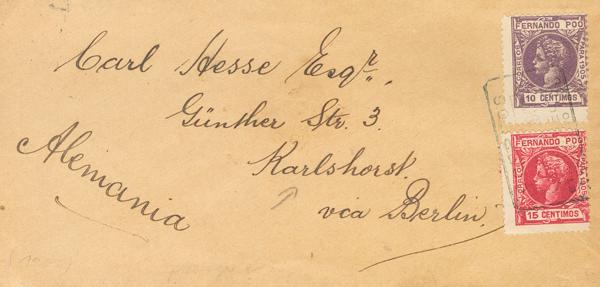 Carl Hesse Esqr.,
Günther Str. 3.
Karlshorst.
via Berlin.
Alemania
FERNANDO POO
CORREOS
PARA 1905
10 CENTIMOS
FERNANDO POO
CORREOS
PARA 1905
15 CENTIMOS